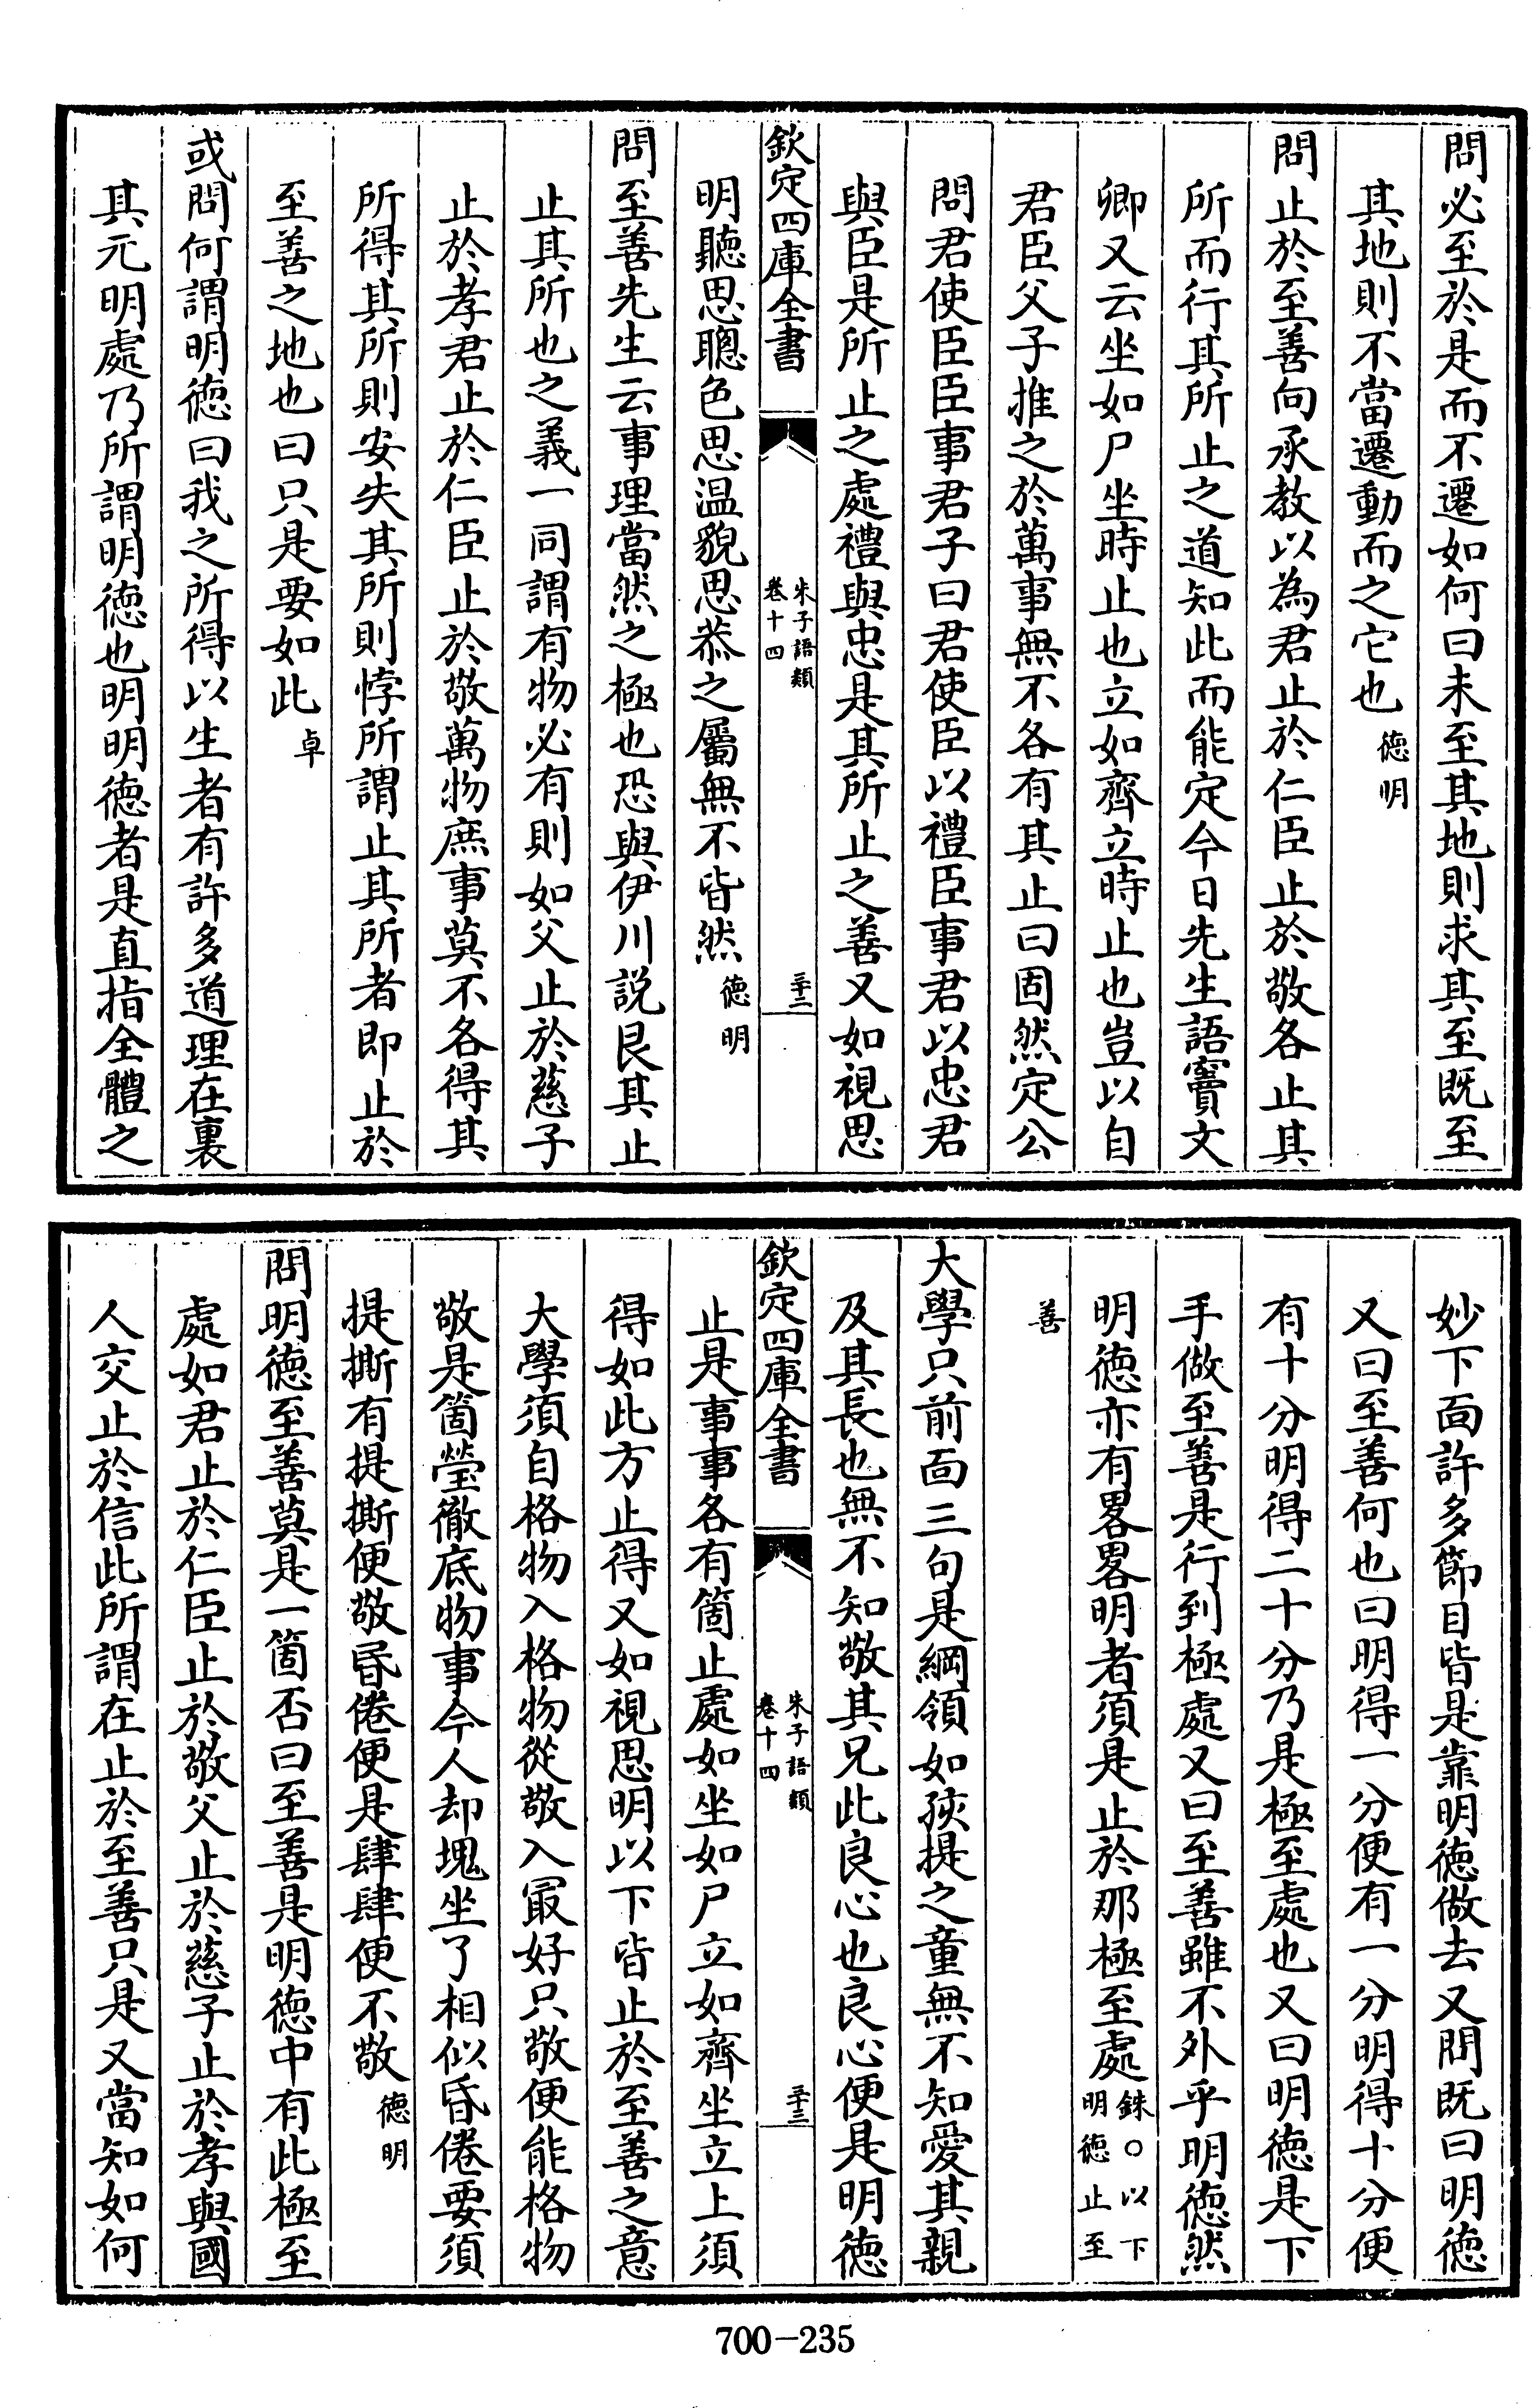 問必至於是而不遷如何曰未至其地則求其至既至
其地則不當遷動而之它也德明
問止於至善向承教以為君止於仁臣止於敬各止其
所而行其所止之道知此而能定今日先生語竇文
卿又云坐如尸坐時止也立如齊立時止也豈以自
君臣父子推之於萬事無不各有其止曰固然定公
問君使臣臣事君子曰君使臣以禮臣事君以忠君
與臣是所止之處禮與忠是其所止之善又如視思
欽定四庫全書
朱子語類
卷十四
三十二
明聽思聰色思温貌思恭之屬無不皆然德明
問至善先生云事理當然之極也恐與伊川説艮其止
止其所也之義一同謂有物必有則如父止於慈子
止於孝君止於仁臣止於敬萬物庶事莫不各得其
所得其所則安失其所則悖所謂止其所者即止於
至善之地也曰只是要如此卓
或問何謂明德曰我之所得以生者有許多道理在裏
其元明處乃所謂明德也明明德者是直指全體之
妙下面許多節目皆是靠明德做去又問既曰明德
又曰至善何也曰明得一分便有一分明得十分便
有十分明得二十分乃是極至處也又曰明德是下
手做至善是行到極處又曰至善雖不外乎明德然
明德亦有畧畧明者須是止於那極至處銖○以下
明德止至
善
大學只前面三句是綱領如孩提之童無不知愛其親
及其長也無不知敬其兄此良心也良心便是明德
欽定四庫全書
朱子語類
卷十四
三十三
止是事事各有箇止處如坐如尸立如齊坐立上須
得如此方止得又如視思明以下皆止於至善之意
大學須自格物入格物從敬入最好只敬便能格物
敬是箇瑩徹底物事今人却塊坐了相似昏倦要須
提撕有提撕便敬昏倦便是肆肆便不敬德明
問明德至善莫是一箇否曰至善是明德中有此極至
處如君止於仁臣止於敬父止於慈子止於孝與國
人交止於信此所謂在止於至善只是又當知如何
700-235